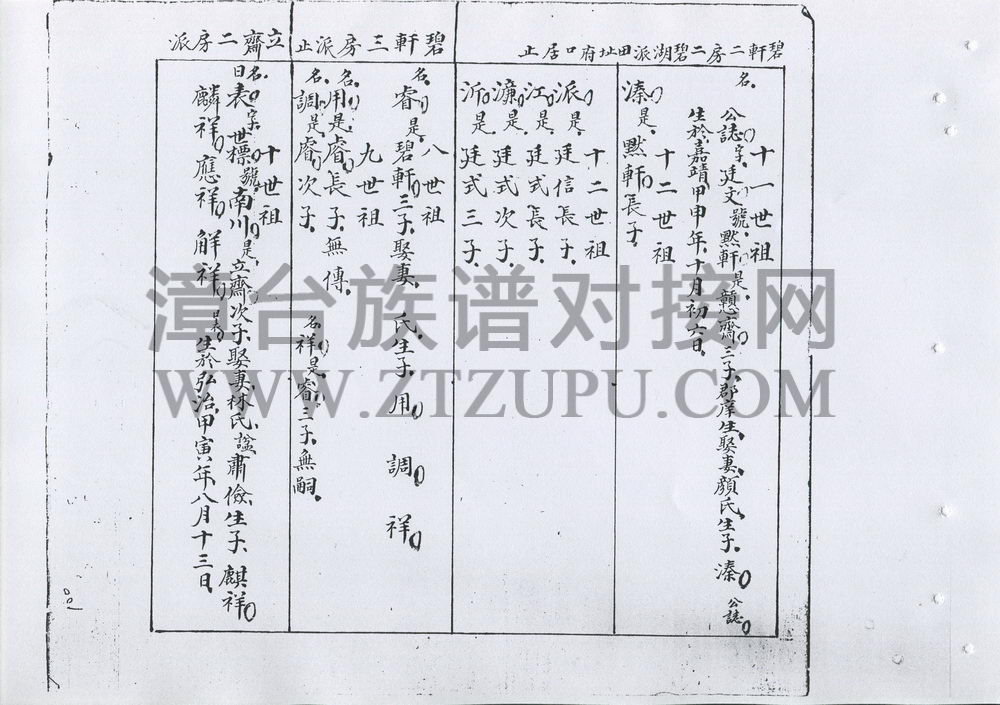 碧軒二房二碧湖派田址府口居止
十一世祖
名公誌字廷文號默軒是戇齋三子郡庠生娶妻顏氏生子溱
公誌
生於嘉靖甲申年十月初六日
十二世祖
溱是默軒長子
十二世祖
派是廷信長子
江是廷式長子
濂是廷式次子
沂是廷式三子
碧軒三房派止
八世祖
名睿是碧軒三子娶妻 氏生子用 調 祥
九世祖
名用是睿長子無傳
名調是睿次子
名祥是睿三子無嗣
立齋二房派
十世祖
名曰表字世標號南川是立齋次子娶妻林氏謚肅儉生子麒祥
麟祥應祥觧祥
生於弘治甲寅年八月十三日
漳台族谱对接网
WWW.ZTZUPU.COM